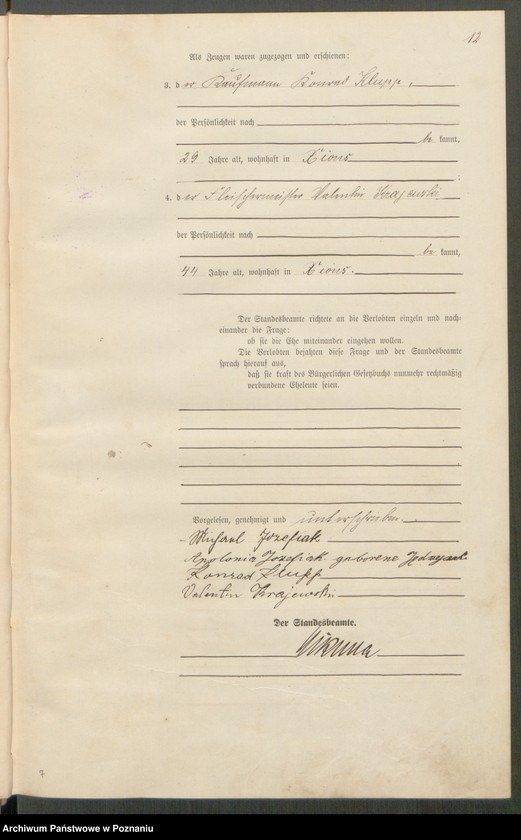 12
Als Zeugen waren zugezogen und erschienen:
3. der Kaufmann Konrad Klupp,
der Persönlichkeit nach
be kannt,
29 Jahre alt, wohnhaft in Xions
;
4. der Fleischermeister Valentin Krajewski
der Persönlichkeit nach
be kannt,
44 Jahre alt, wohnhaft in Xions.
Der Standesbeamte richtete an die Verlobten einzeln und nach-
einander die Frage:
ob sie die Ehe miteinander eingehen wollen.
Die Verlobten bejahten diese Frage und der Standesbeamte
sprach hierauf aus,
daß sie kraft des Bürgerlichen Gesetzbuchs nunmehr rechtmäßig
verbundene Eheleute seien.
Vorgelesen, genehmigt und unterschrieben
Michael Józefiak
Apolonia Jozefiak geborene
Konrad Klupp
Valentin Krajewski
Der Standesbeamte.
7
Archiwum Państwowe w Poznaniu